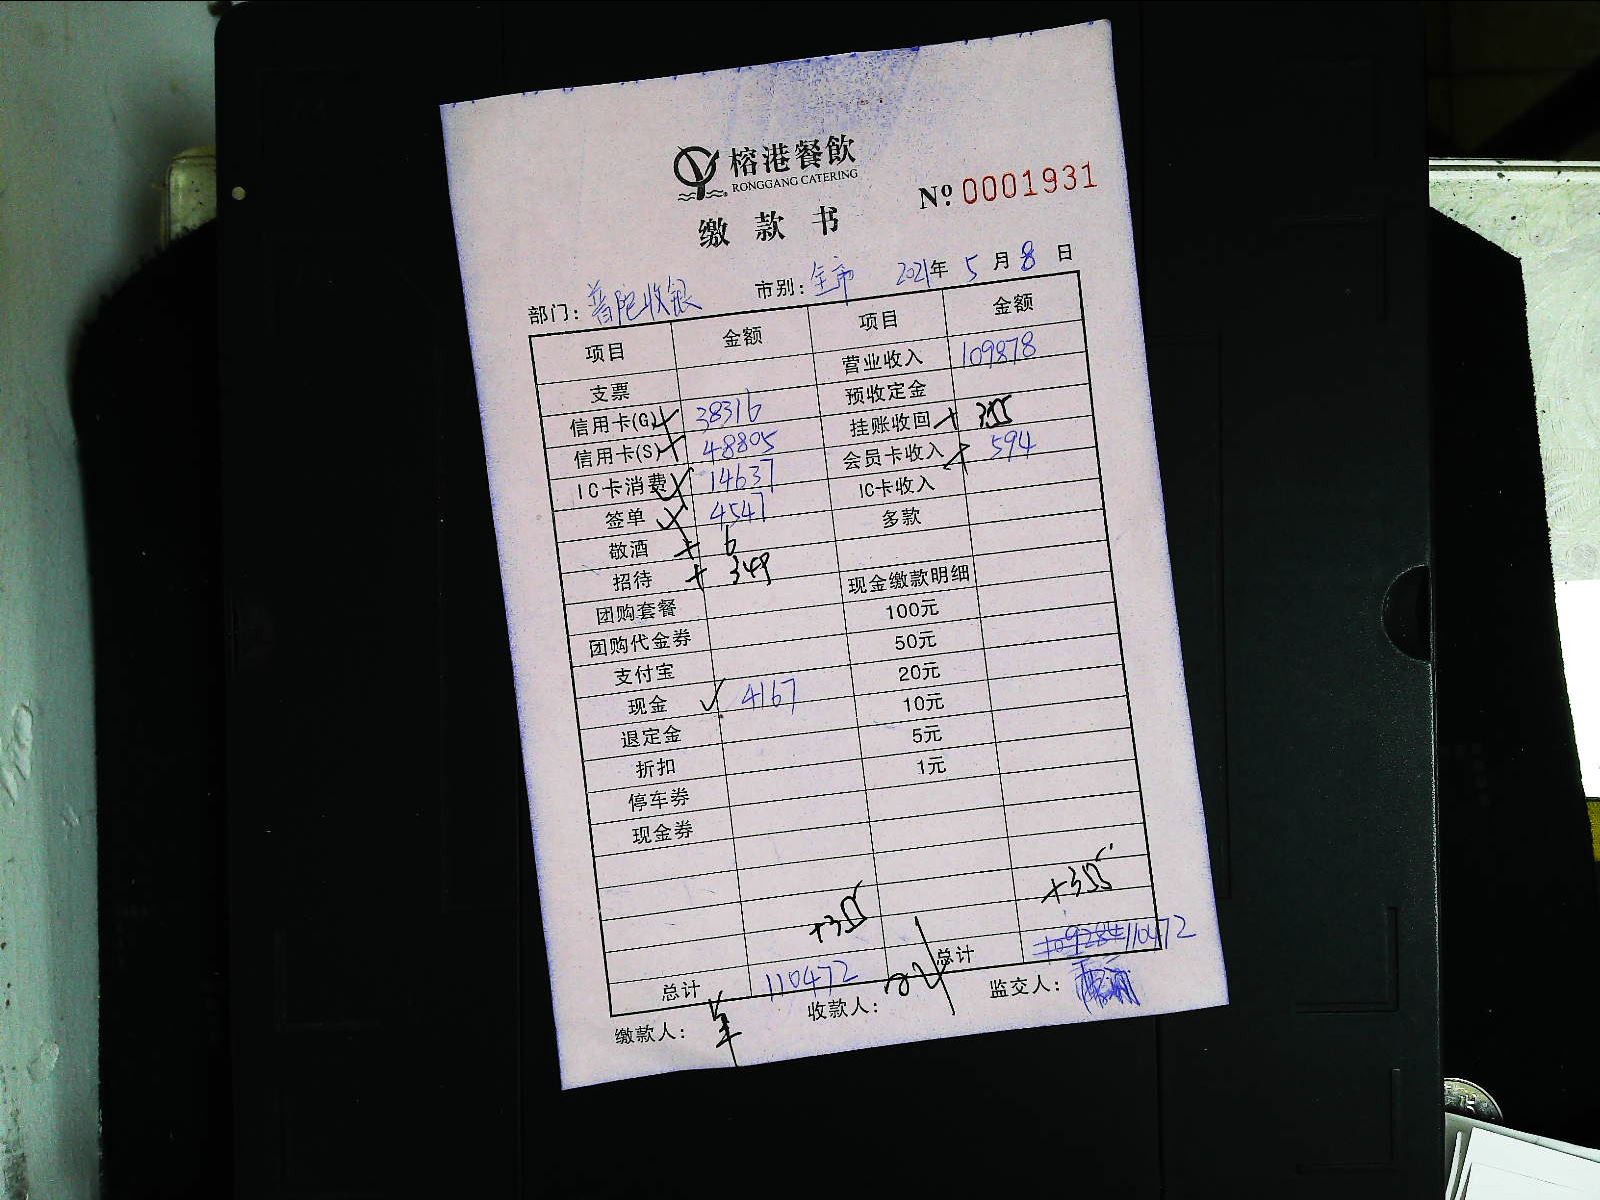 榕港餐飲
RONGGANG CATERING
№ 0001931
缴款书
部门: 普陀收银 市别: 全市 2021年 5月 8日
项目 金额 项目 金额
支票 营业收入 109878
信用卡(G) 38316 预收定金
信用卡(S) 48805 挂账收回 + 355
IC卡消费 14637 会员卡收入 594
签单 4547 IC卡收入
敬酒 + 6 多款
招待 + 349
团购套餐 现金缴款明细
团购代金券 100元
支付宝 50元
现金 ✓ 4167 20元
退定金 10元
折扣 5元
停车券 1元
现金券
+355 +355
总计 110472 总计 110472
缴款人: 收款人: 监交人: